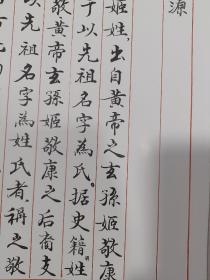 源
姬姓，出自黄帝之玄孫姬敬康
于以先祖名字為氏。据史籍“姓
敬，黄帝玄孫姬敬康之后裔支
以先祖名字為姓氏者，稱之敬